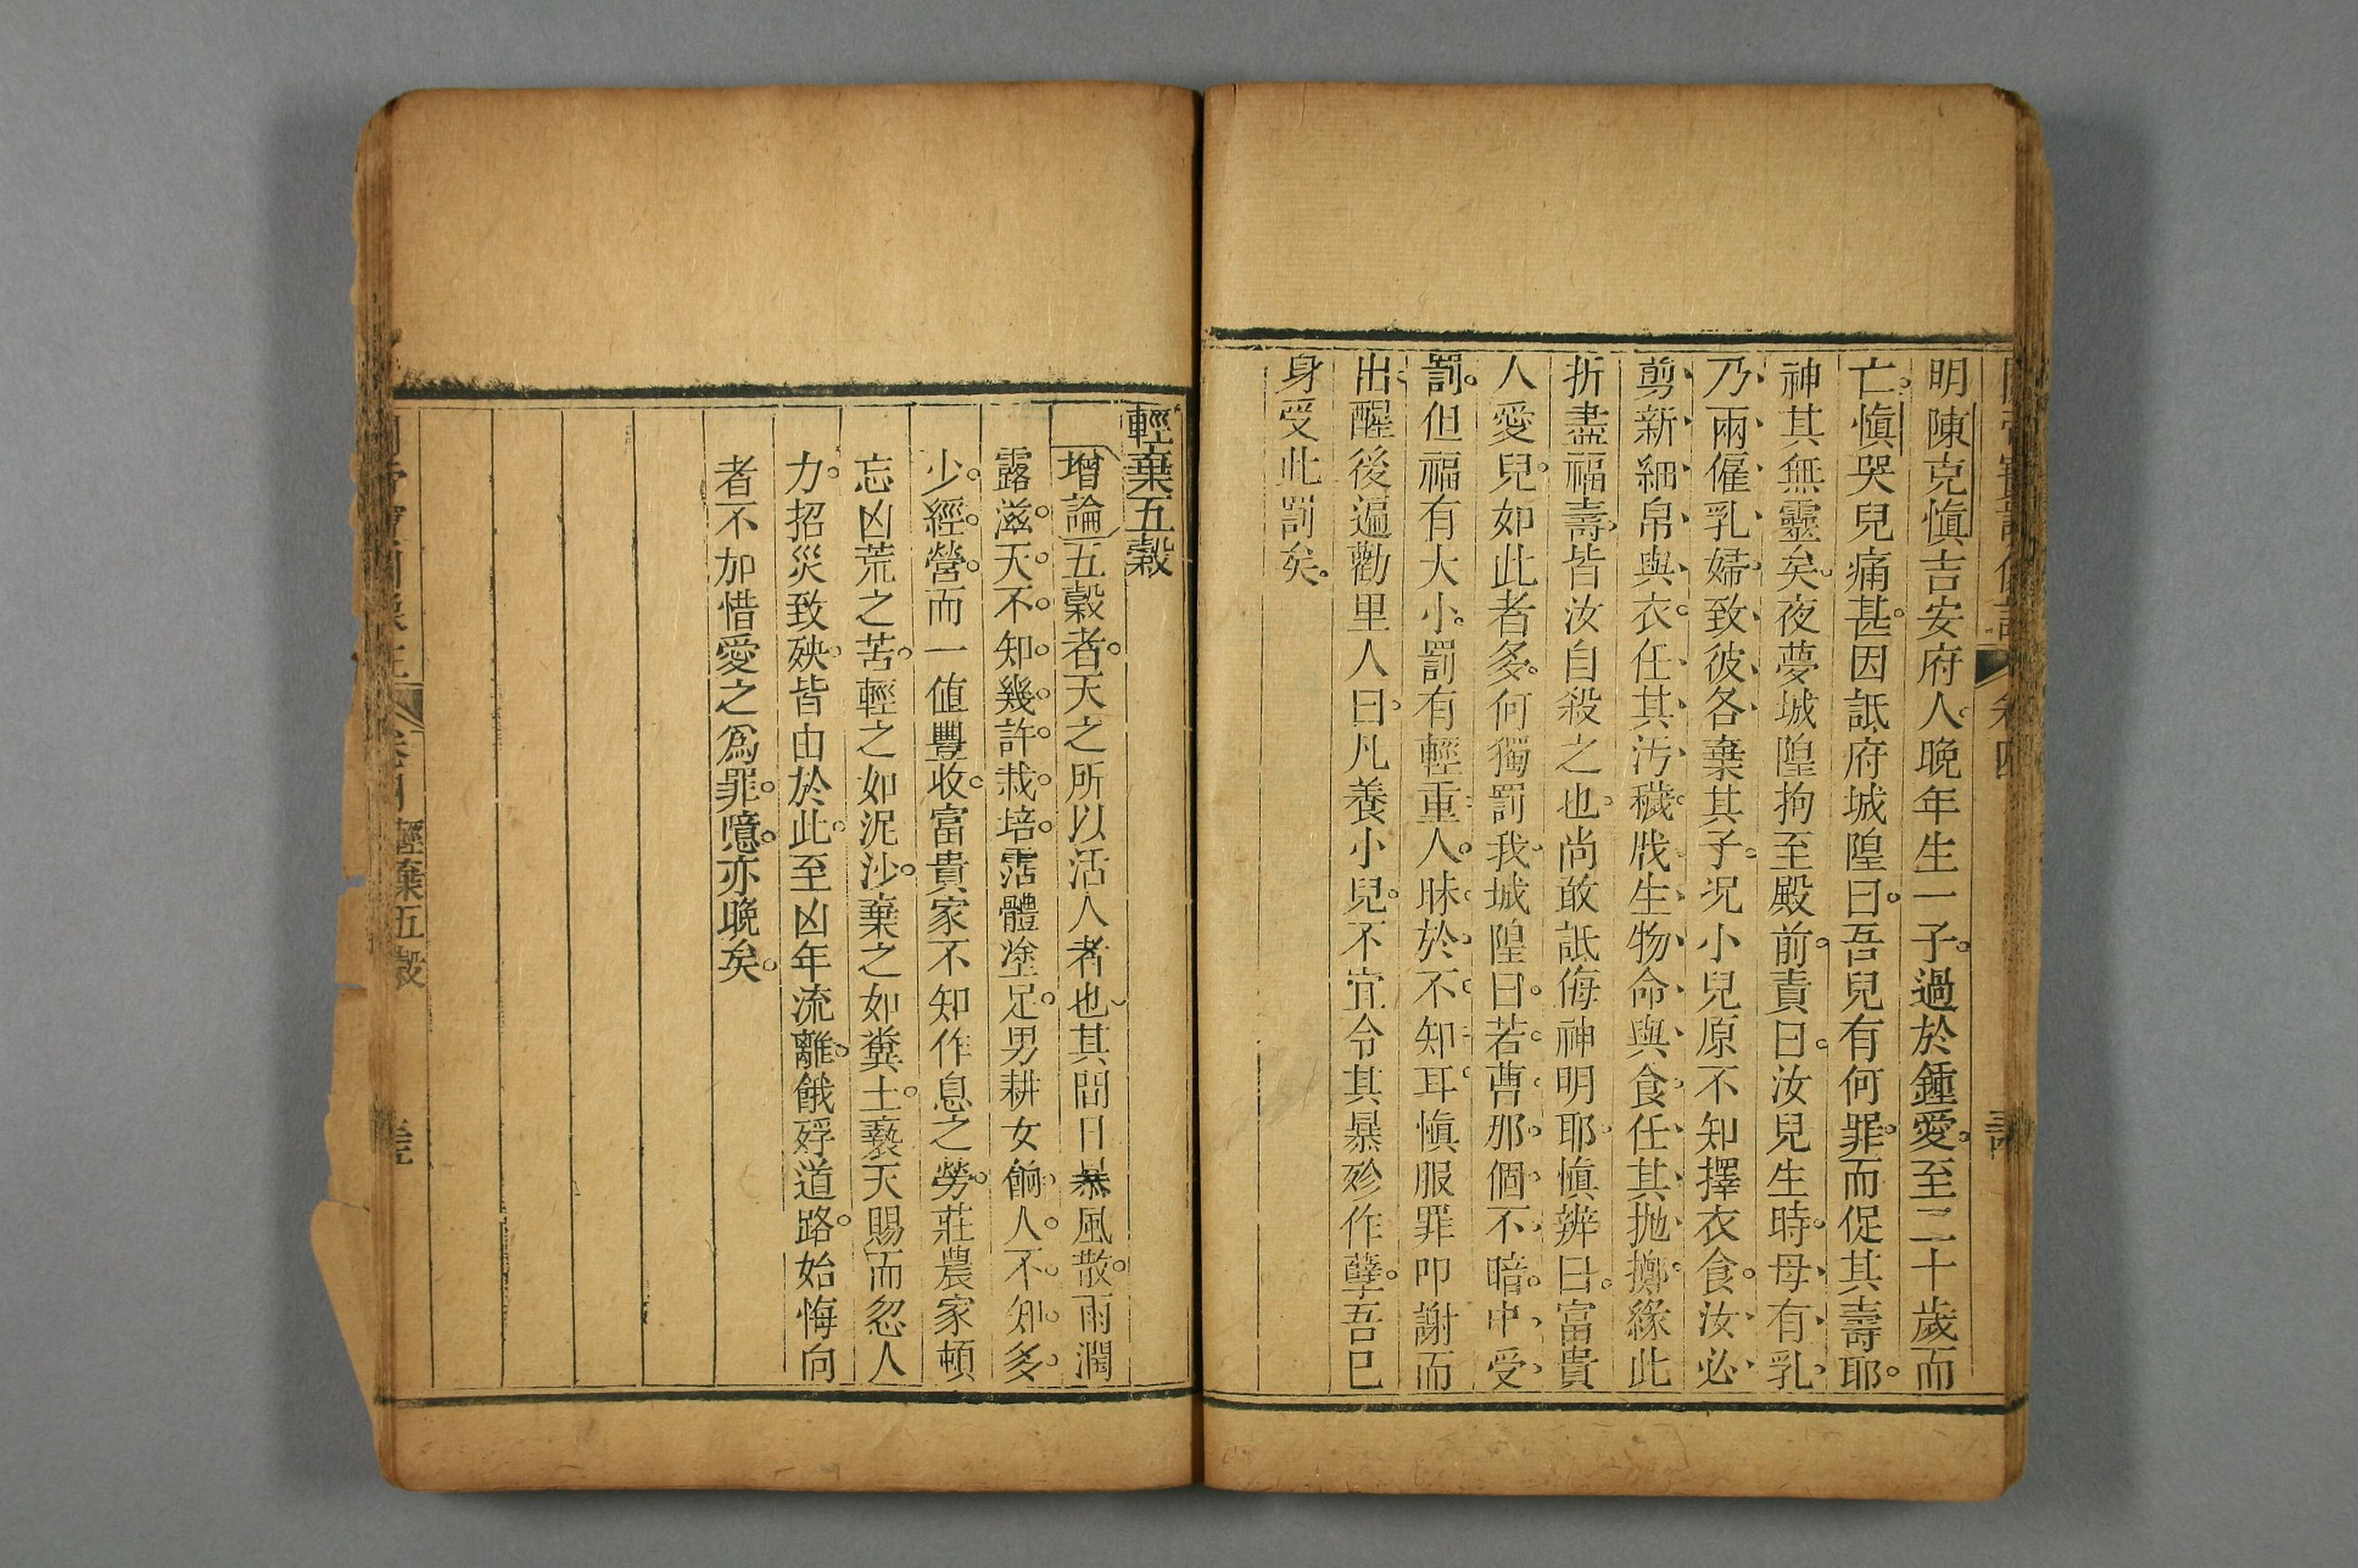 明陳克愼吉安府人晩年生一子過於鍾愛至二十歲而
亡愼哭兒痛甚因詆府城隍曰吾兒有何罪而促其壽耶
神其無靈矣夜夢城隍拘至殿前責曰汝兒生時母有乳
乃兩僱乳婦致彼各棄其子况小兒原不知擇衣食汝必
剪新細帛與衣任其汚穢戕生物命與食任其抛擲緣此
折盡福壽皆汝自殺之也尚敢詆侮神明耶愼辨曰富貴
人愛兒如此者多何獨罰我城隍曰若曹那個不暗中受
罰但福有大小罰有輕重人昧於不知耳愼服罪叩謝而
出醒後遍勸里人曰凡養小兒不宜令其暴殄作孽吾已
身受此罰矣
輕棄五穀
增論五穀者天之所以活人者也其間日暴風散雨潤
露滋天不知幾許栽培霑體塗足男耕女餉人不知多
少經營而一値豐收富貴家不知作息之勞莊農家頓
忘凶荒之苦輕之如泥沙棄之如糞土褻天賜而忽人
力招災致殃皆由於此至凶年流離餓殍道路始悔向
者不加惜愛之爲罪噫亦晚矣
輕棄五穀